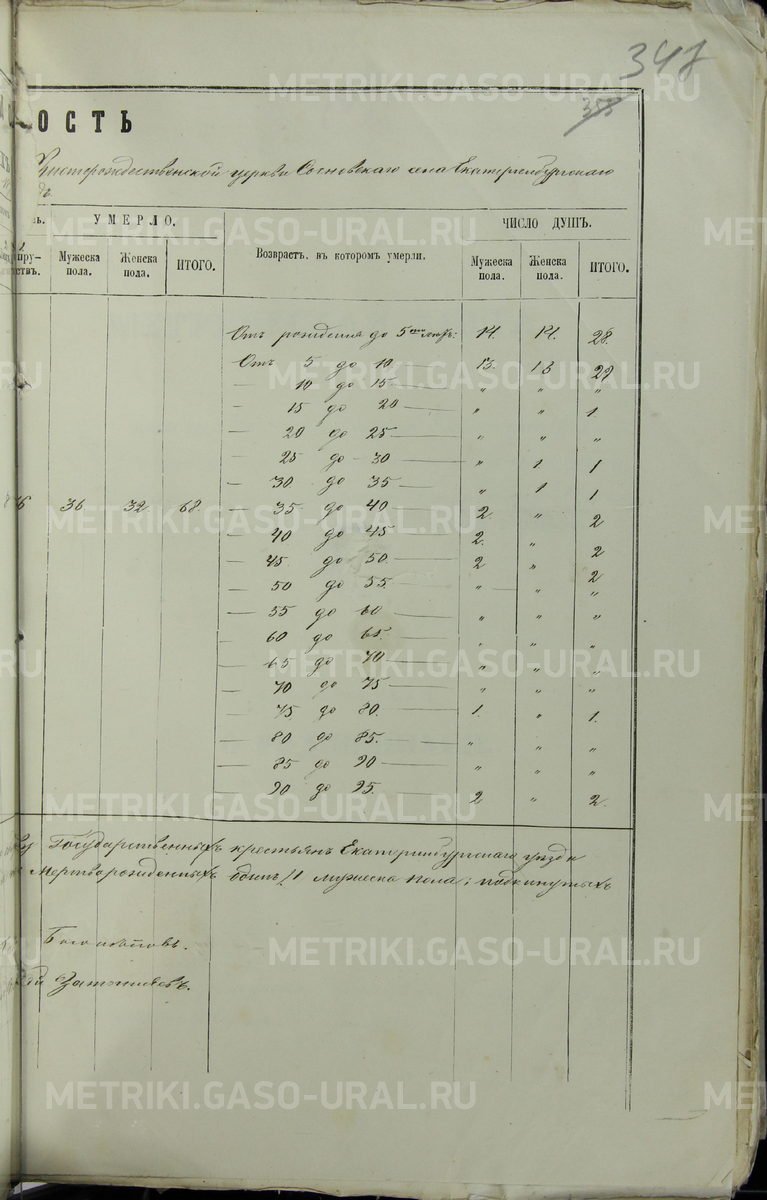 347
355
ОСТЬ
Христорождественской церкви Сосновскаго села Екатеринбургскаго
УМЕРЛО. ЧИСЛО ДУШЪ.
пру- Мужеска Женска ИТОГО. Возврастъ, въ которомъ умерли. Мужеска Женска ИТОГО.
ствъ. пола. пола. пола. пола.
Отъ рожденія до 5 лѣтъ: 14. 14. 28.
Отъ 5 до 10 — 13. 13
— 10 до 15 — " " "
— 15 до 20 — " " 1
— 20 до 25 — " " "
— 25 до 30 — " 1 1
— 30 до 35 — " 1 1
36 32 68. — 35 до 40 — 2. " 2
— 40 до 45 — 2. " 2
— 45. до 50. — 2 " 2
— 50 до 55. — " " "
— 55 до 60 — " " "
60 до 65. — " " "
— 65 до 70 — " " "
— 70 до 75 — " " "
— 75 до 80. — 1. " 1.
— 80 до 85. — " " "
— 85 до 90 — " " "
— 90 до 95. — 2 " 2.
Государственныхъ крестьянъ Екатеринбургскаго уѣзда
Мертворожденныхъ одинъ /1 мужеска пола; подкинутыхъ
METRIKI.GASO-URAL.RU